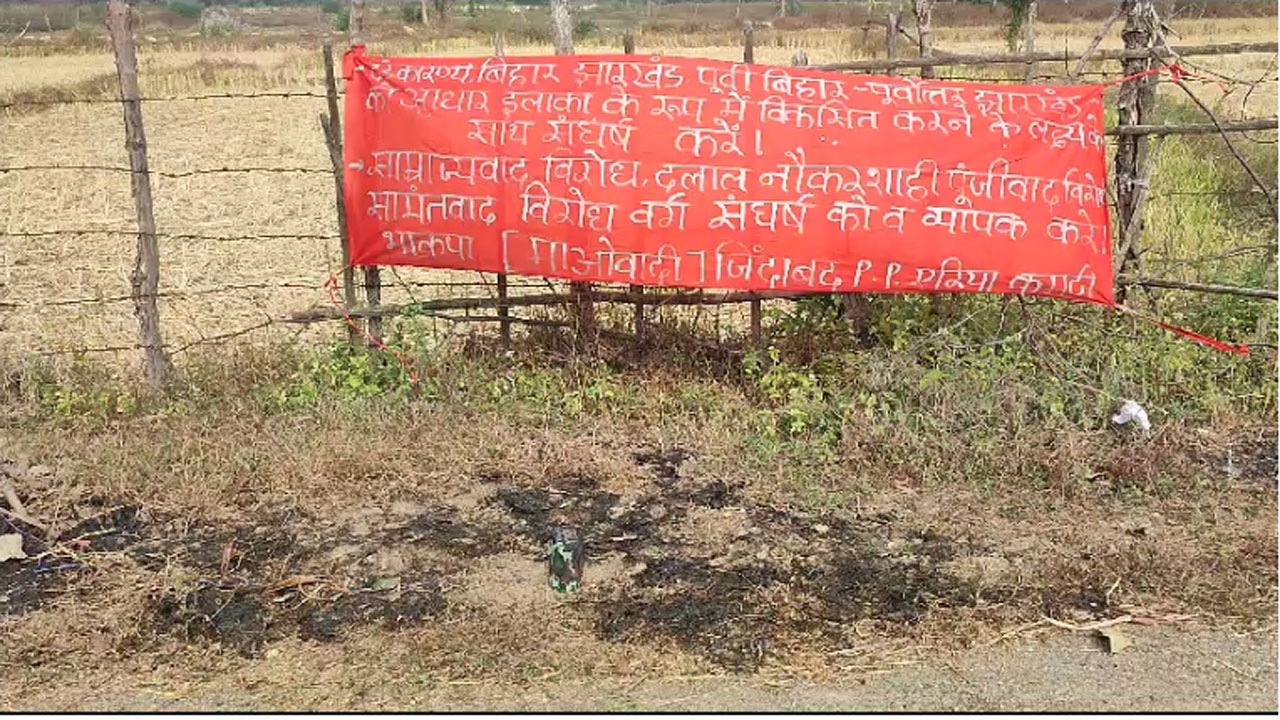 → दंडकारण्य, बिहार झारखंड पूर्वी बिहार-पूर्वोत्तर झारखंड
को आधार इलाका के रूप में विकसित करने के लक्ष्य के
साथ संघर्ष करें।
→ साम्राज्यवाद विरोध, दलाल नौकरशाही पूंजीवाद विरोध
सामंतवाद विरोध वर्ग संघर्ष को व व्यापक करें।
भाकपा [माओवादी] जिंदाबाद P.P. एरिया कमाटी